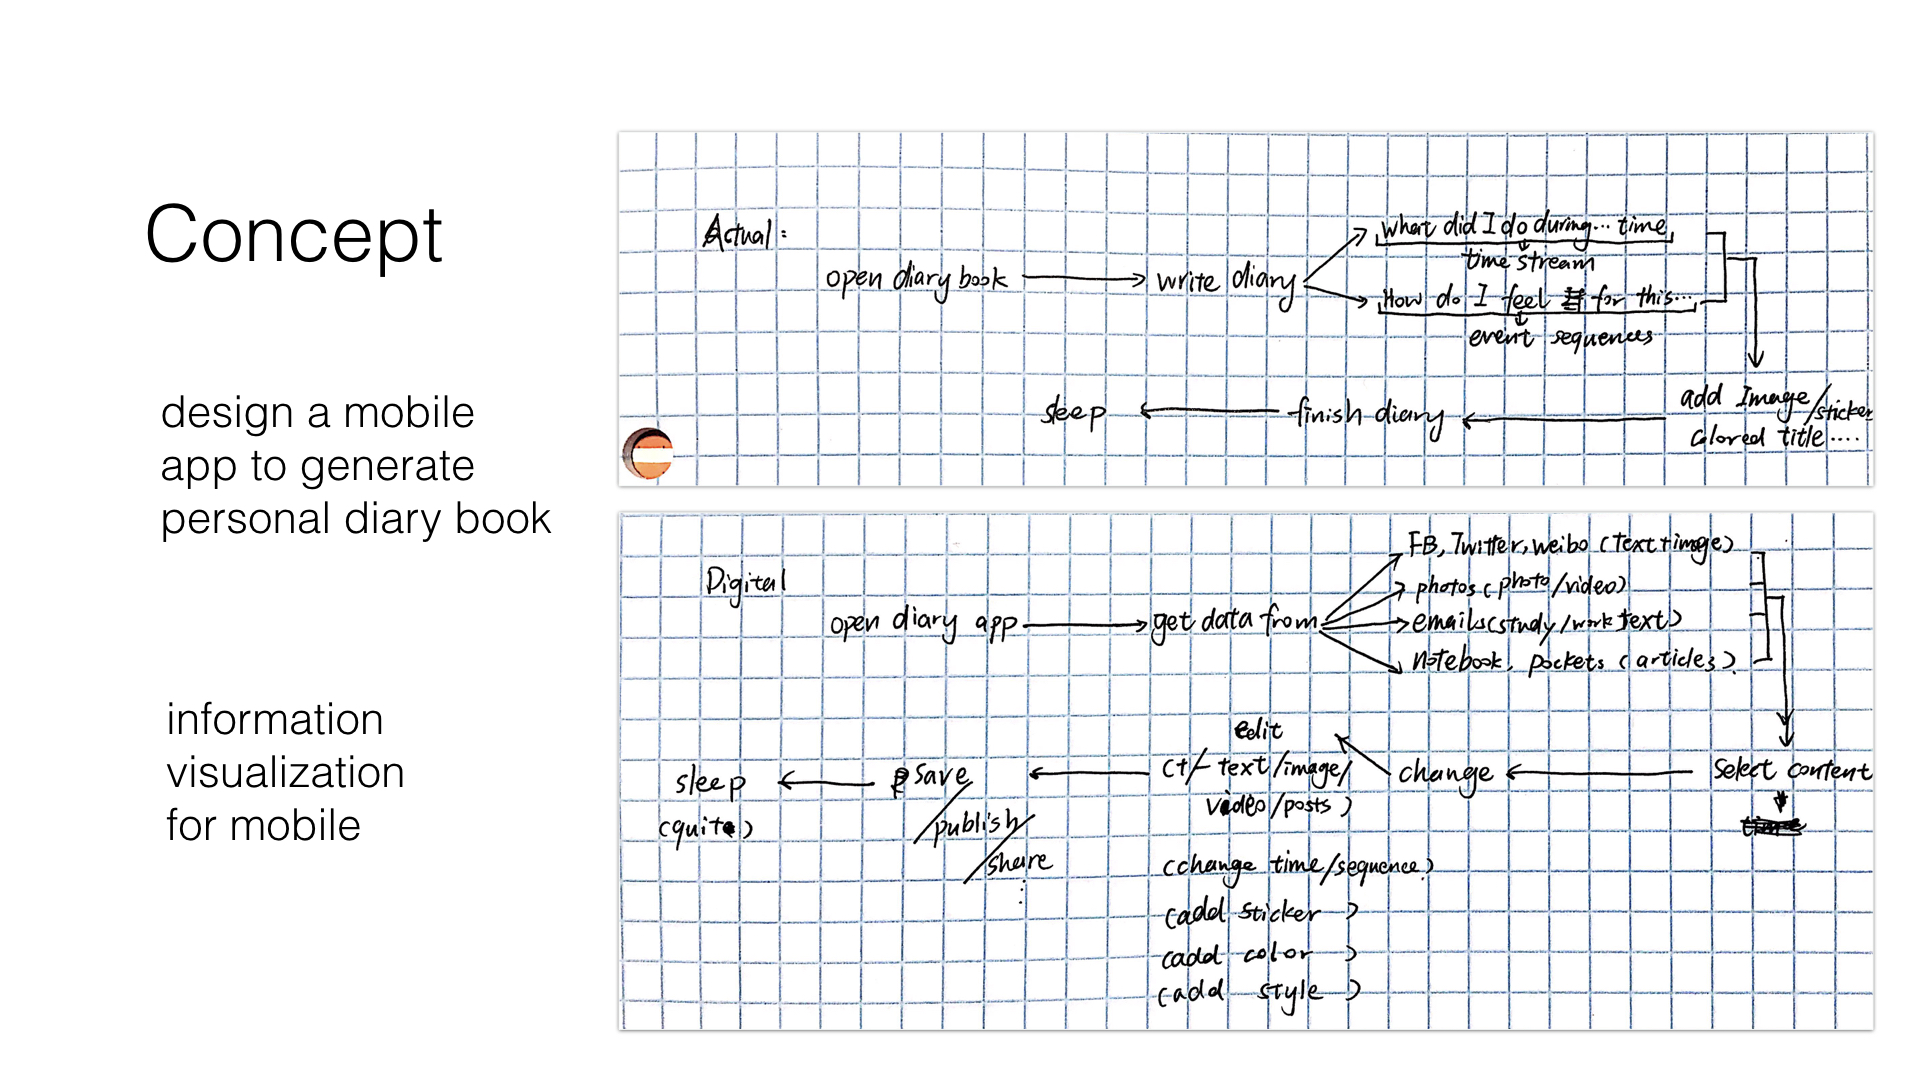 Concept
design a mobile
app to generate
personal diary book
information
visualization
for mobile
Actual:
open diary book
write diary
what did I do during... time
time stream
How do I feel for this...
event sequences
add Image/sticker
colored title ....
finish diary
sleep
Digital
open diary app
get data from
FB, Twitter, weibo (text+image)
photos (photo/video)
emails (study/work text)
notebook, pockets (articles)
select content
change
edit
(+/- text/image/
video/posts)
(change time/sequence)
(add sticker )
(add color )
(add style )
save
/publish
/share
sleep
(quite)